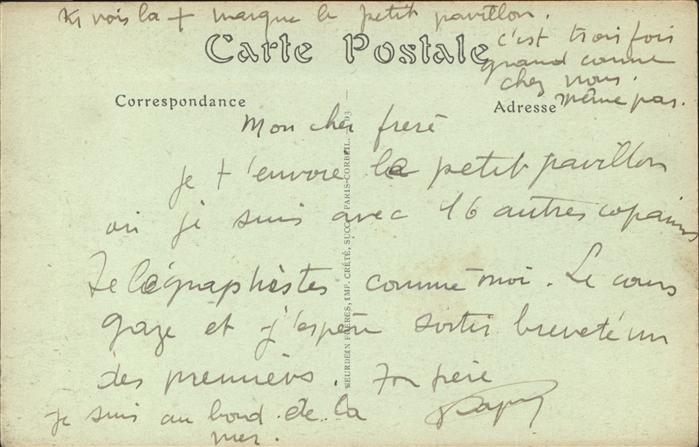 tu vois la + marque le petit pavillon.
c'est trois fois
grand comme
chez nous.
même pas.
Carte Postale
Correspondance
Adresse
Mon cher frère
je t'envoie le petit pavillon
où je suis avec 16 autres copains
Télégraphistes comme moi. Le cours
gaze et j'espère sortir breveté un
des premiers. Ton frère
je suis au bord de la
mer.
NEURDEIN FRÈRES, IMP. CRÉTÉ, SUCC. PARIS-CORBEIL.